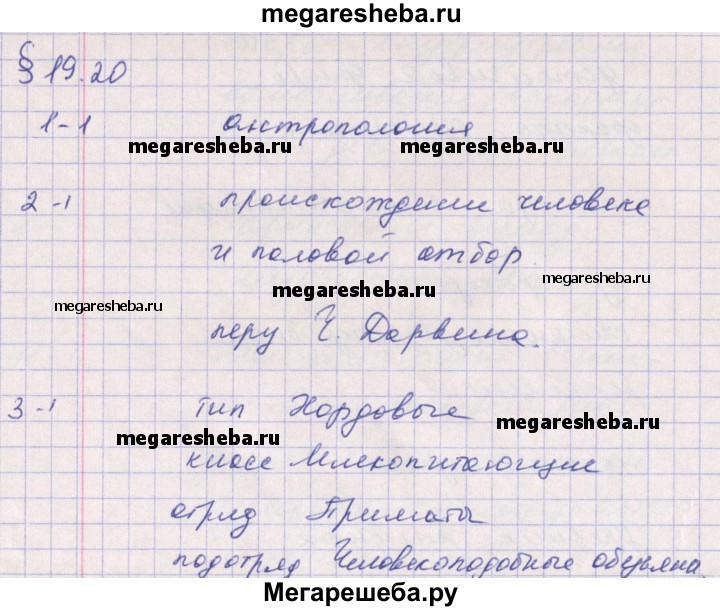 megaresheba.ru
§ 19.20
1-1 антропология
megaresheba.ru megaresheba.ru
2-1 происхождение человека
и половой отбор.
megaresheba.ru
megaresheba.ru
megaresheba.ru
перу Ч. Дарвина.
3-1 тип Хордовые
megaresheba.ru
megaresheba.ru
класс Млекопитающие
отряд Приматы
подотряд Человекоподобные обезьяна.
Мегарешеба.ру